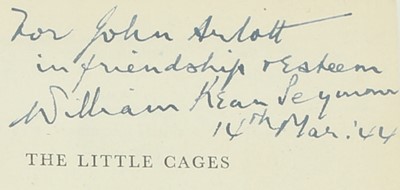 For John Arlott
in friendship & esteem
William Kean Seymour
14th Mar. '44
THE LITTLE CAGES